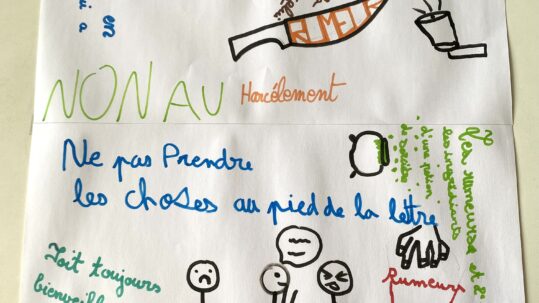 en
RUMEUR
NON AU Harcèlement
Ne pas Prendre
les choses au pied de la lettre
Les rumeurs et
les ingrédients
d'une potion
Soit toujours
Rumeurs